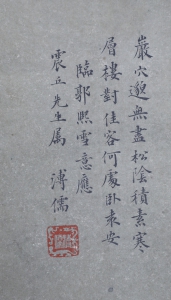 巖穴邈無盡松陰積素寒
層樓對佳客何處臥袁安
臨郭熙雪意應
震丘先生属 溥儒